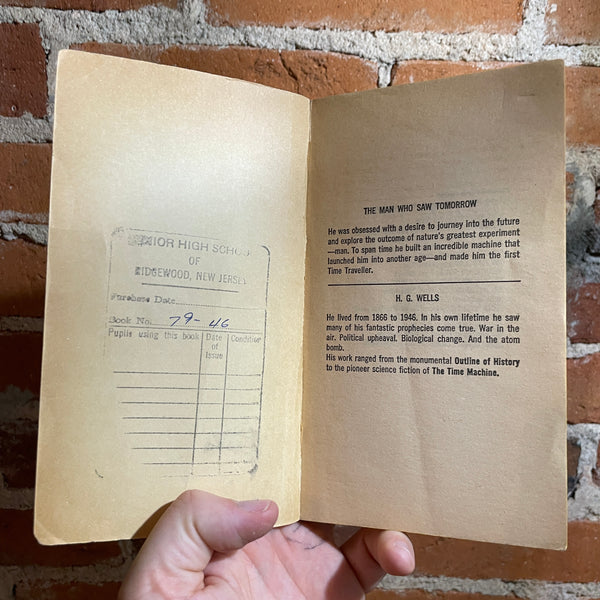 HIGH SCHOOL
OF
RIDGEWOOD, NEW JERSEY
Purchase Date
Book No. 79-46
Pupils using this book Date of Issue Condition
THE MAN WHO SAW TOMORROW
He was obsessed with a desire to journey into the future
and explore the outcome of nature's greatest experiment
—man. To span time he built an incredible machine that
launched him into another age—and made him the first
Time Traveller.
H. G. WELLS
He lived from 1866 to 1946. In his own lifetime he saw
many of his fantastic prophecies come true. War in the
air. Political upheaval. Biological change. And the atom
bomb.
His work ranged from the monumental Outline of History
to the pioneer science fiction of The Time Machine.